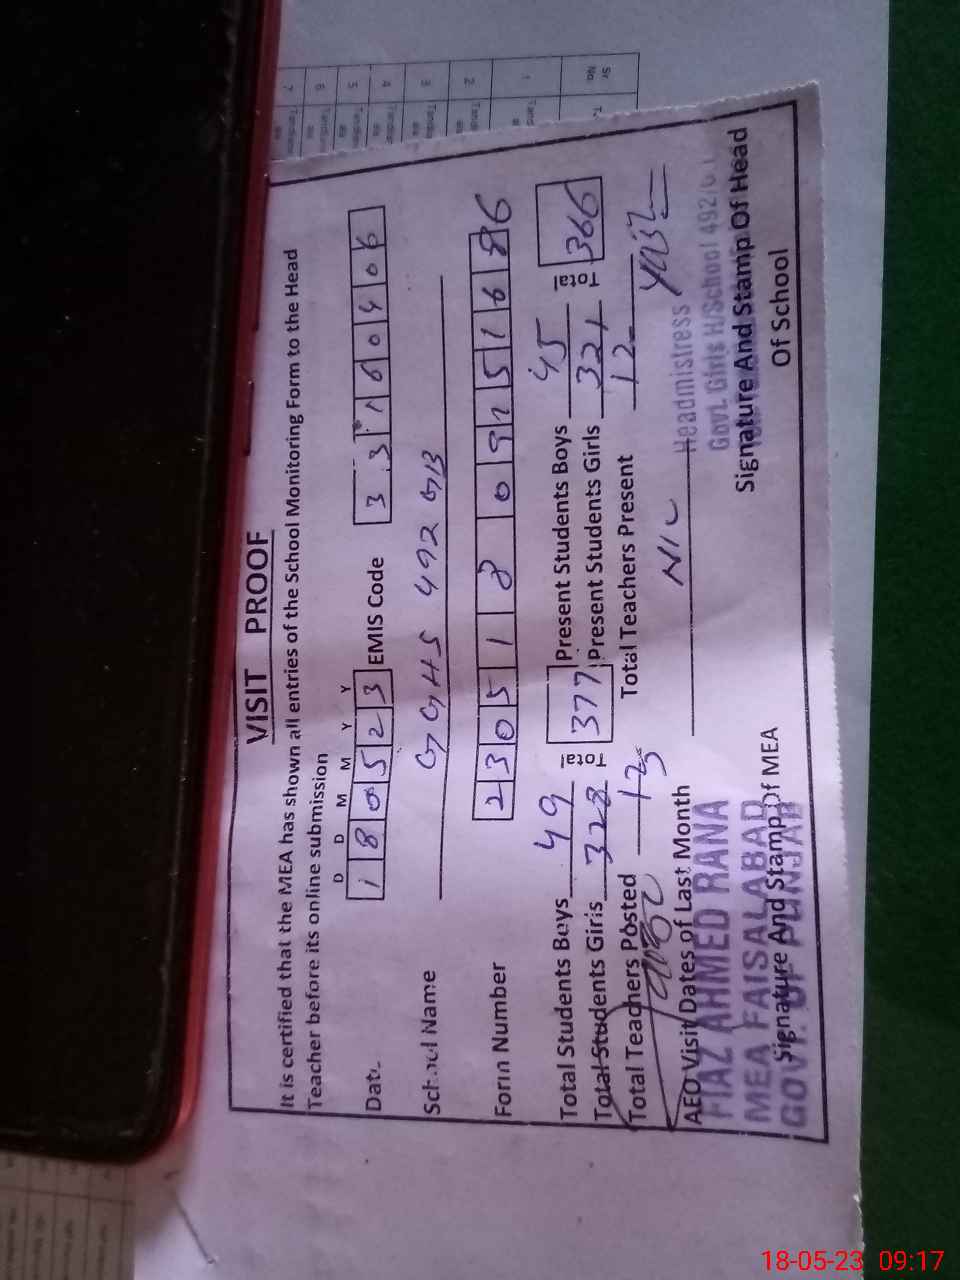 VISIT PROOF
It is certified that the MEA has shown all entries of the School Monitoring Form to the Head
Teacher before its online submission
D D M M Y Y
Date 1 8 0 5 2 3 EMIS Code 3 3 1 6 0 4 0 6
School Name GGHS 492 GB
Form Number 2 3 0 5 1 8 0 9 2 5 1 6 8 6
Total Students Boys 49 Total 377 Present Students Boys 45 Total 366
Total Students Girls 328 Present Students Girls 321
Total Teachers Posted 13 Total Teachers Present 12
AEO Visit Dates of Last Month NIL
FIAZ AHMED RANA
MEA FAISALABAD
GOVT. OF PUNJAB
Signature And Stamp Of MEA
Headmistress
Govt. Girls H/School 492/G.
Signature And Stamp Of Head
Of School
Sr
No
1
2
3
4
5
6
7
18-05-23 09:17